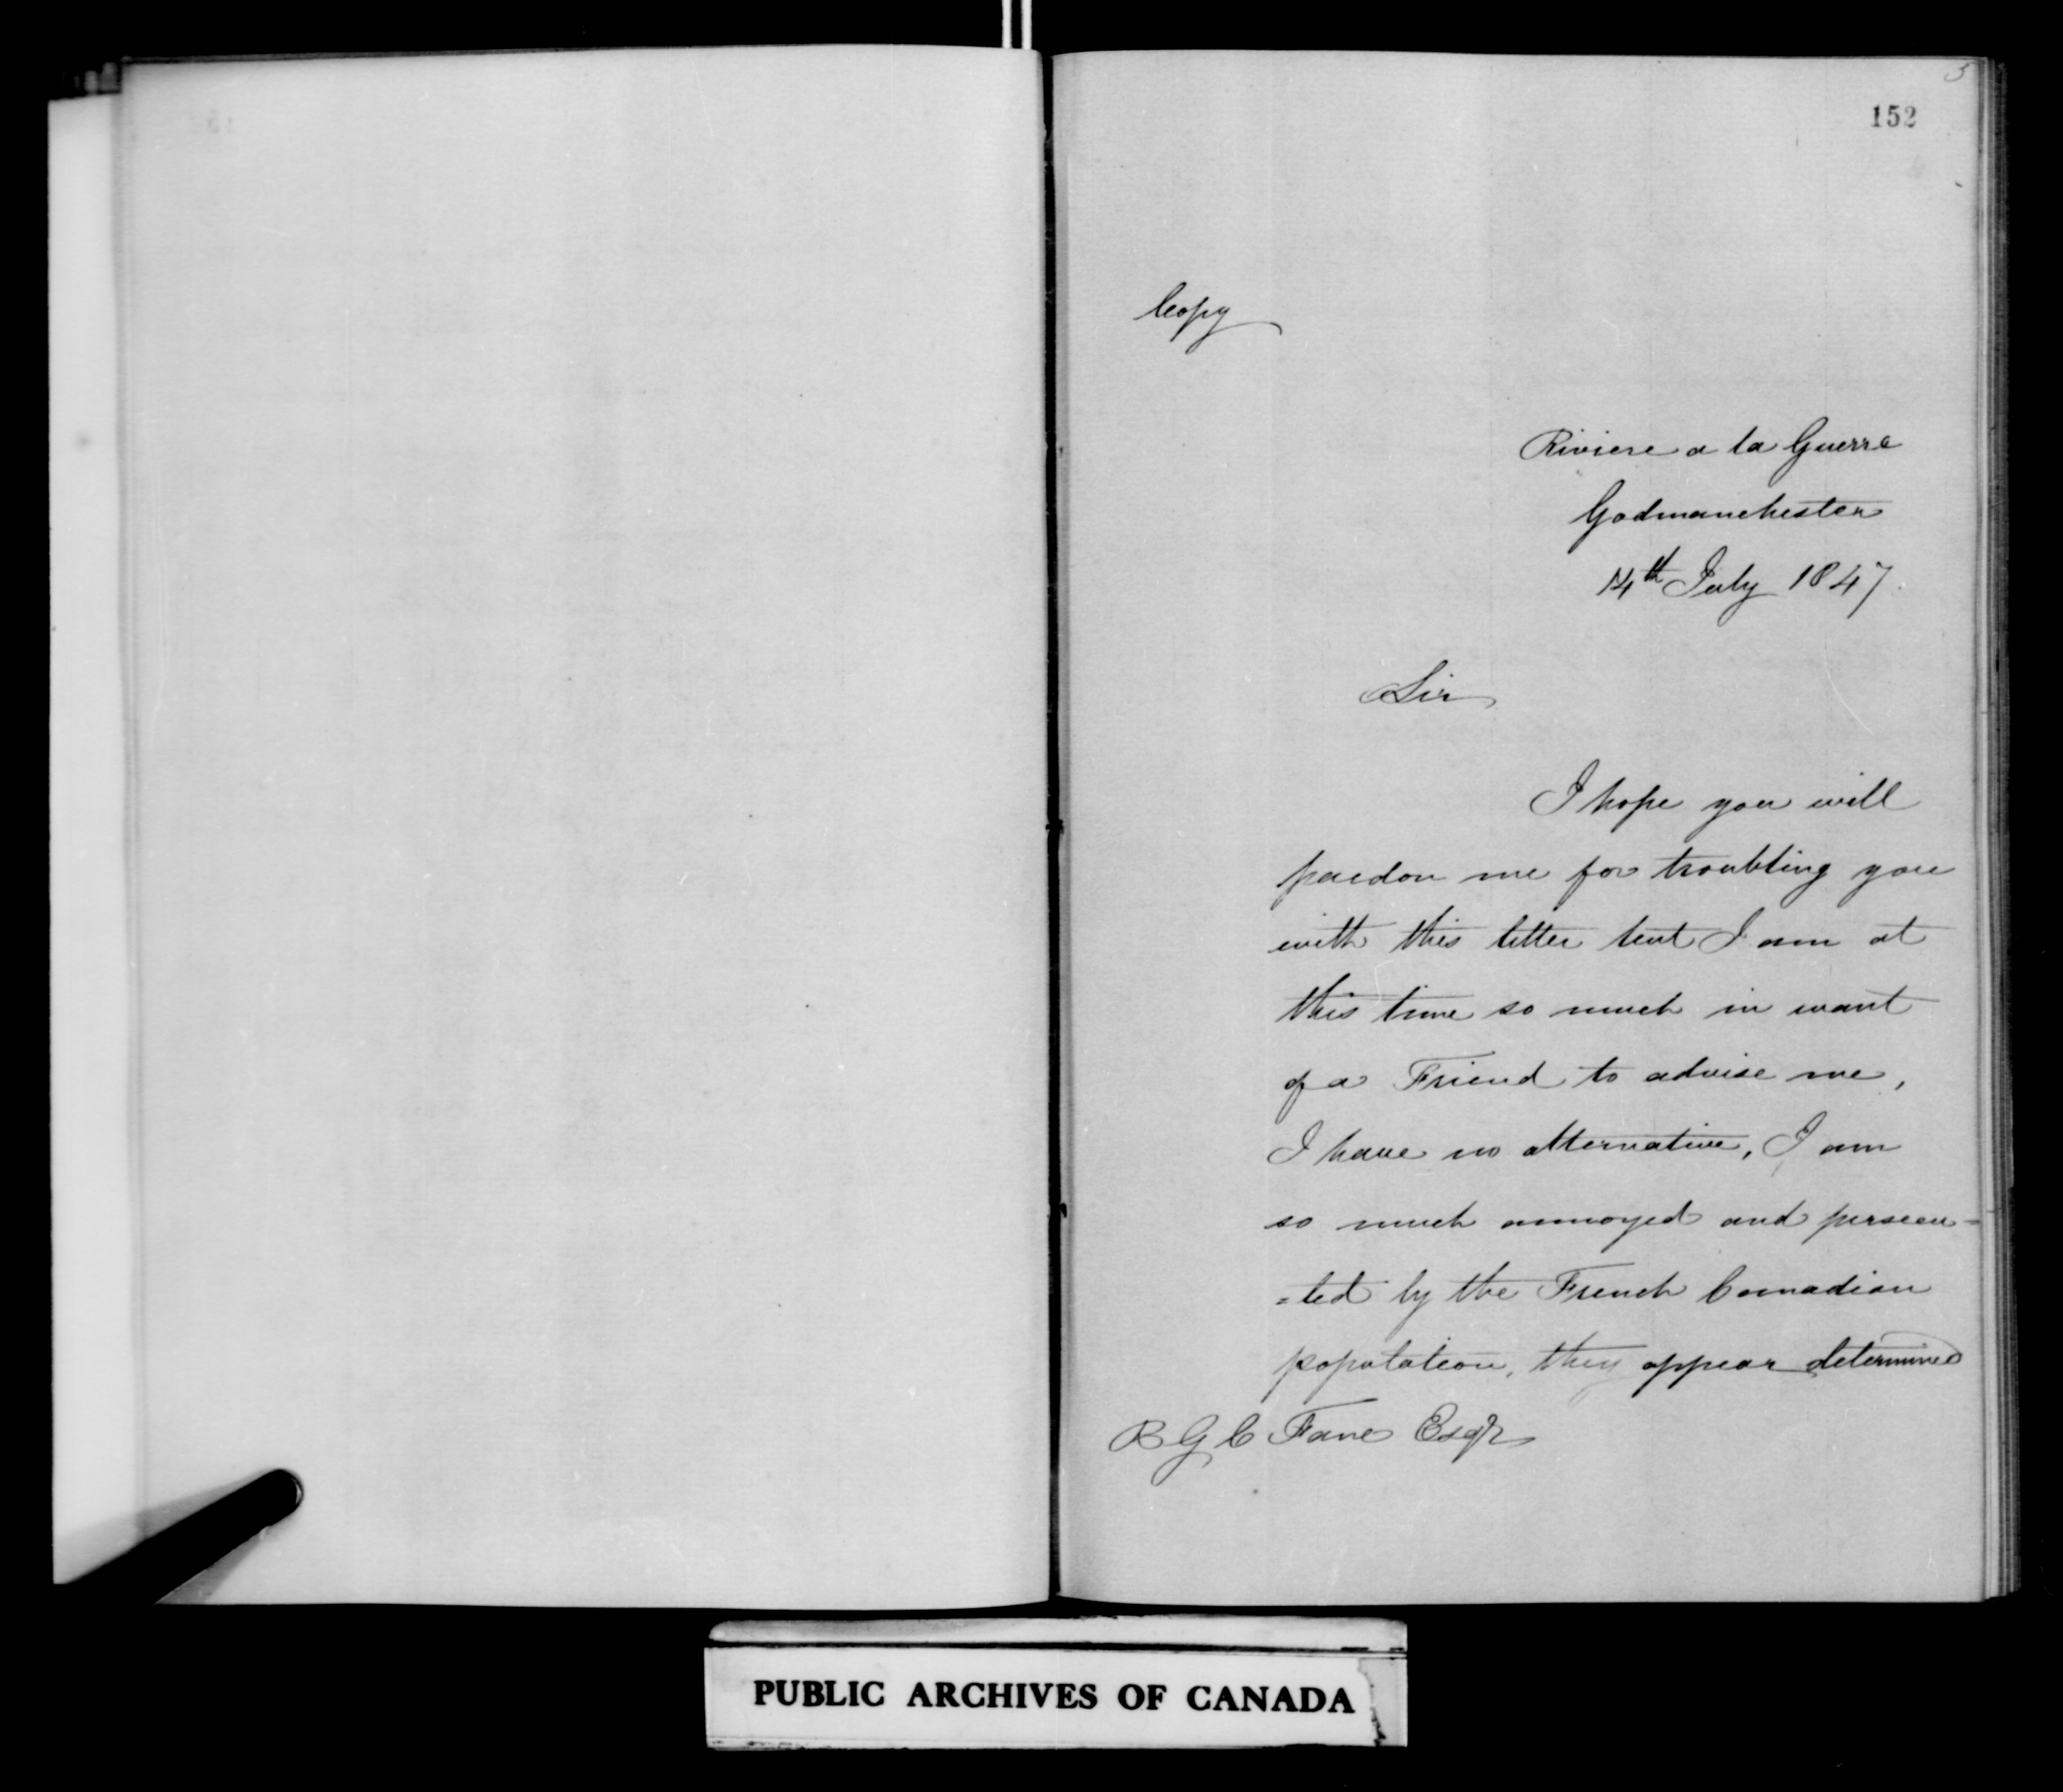 152
Copy
Riviere a la Guerre
Godmanchester
14th July 1847.
Sir
I hope you will
pardon me for troubling you
with this letter but I am at
this time so much in want
of a Friend to advise me,
I have no alternative, I am
so much annoyed and persecu=
=ted by the French Canadian
population, they appear determined
R G C Fane Esqr
PUBLIC ARCHIVES OF CANADA